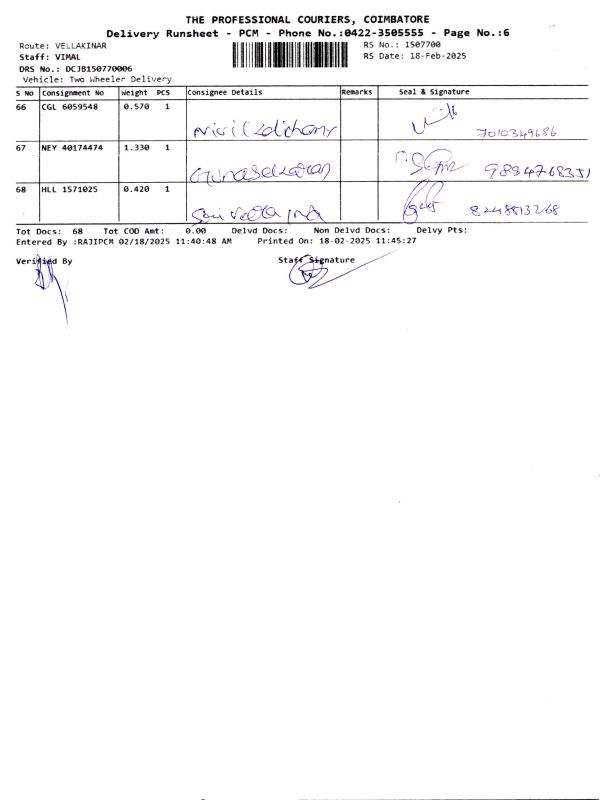 THE PROFESSIONAL COURIERS, COIMBATORE
Delivery Runsheet - PCM - Phone No.:0422-3505555 - Page No.:6
Route: VELLAKINAR RS No.: 1507700
Staff: VIMAL RS Date: 18-Feb-2025
DRS No.: DCJB150770006
Vehicle: Two Wheeler Delivery
S No Consignment No Weight PCS Consignee Details Remarks Seal & Signature
66 CGL 6059548 0.570 1
7010349686
67 NEY 40174474 1.330 1
Gunasekaran
68 HLL 1571025 0.420 1
Tot Docs: 68 Tot COD Amt: 0.00 Delvd Docs: Non Delvd Docs: Delvy Pts:
Entered By :RAJIPCM 02/18/2025 11:40:48 AM Printed On: 18-02-2025 11:45:27
Verified By Staff Signature